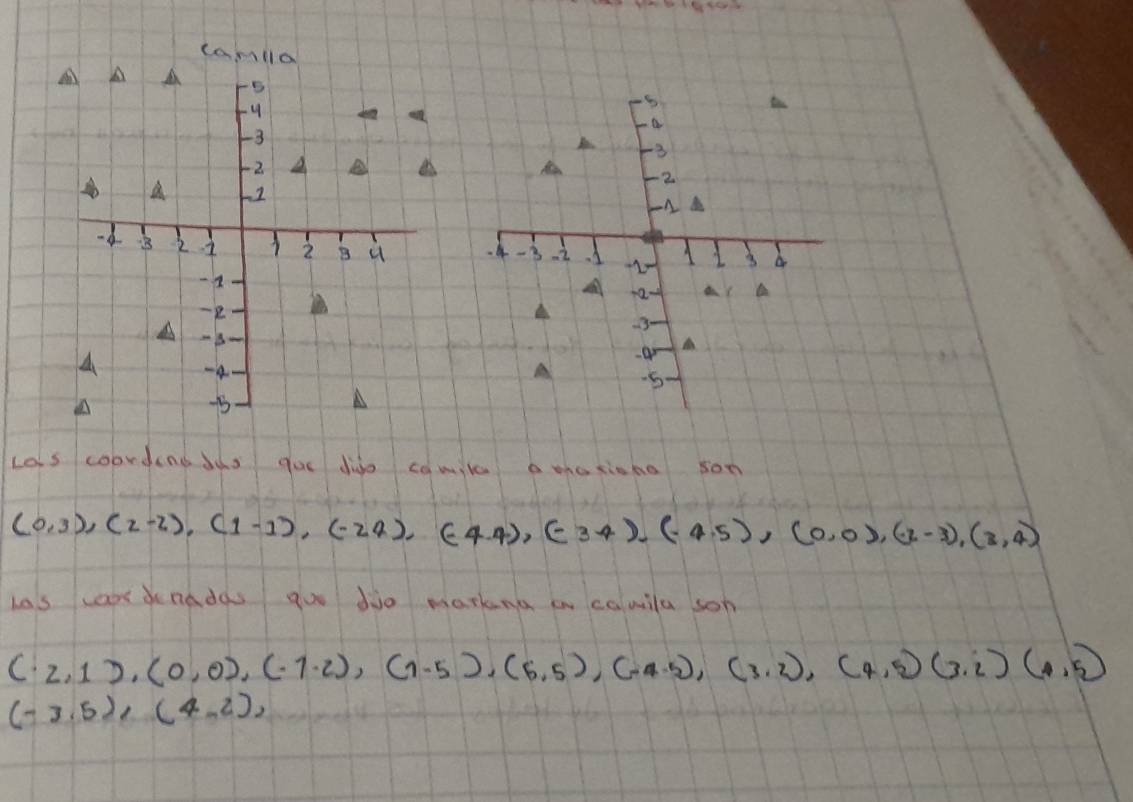 Camila
5
4
3
2
1
-4 -3 -2 -1 1 2 3 4
-1
-2
-3
-4
-5
5
4
3
2
-1
-4 -3 -2 -1 1 2 3 4
-2
-3
-4
-5
Las coordenadas que dijo camila a mariana son
(0,3), (2-2), (1-1), (-24), (-4-4), (-34), (-4,5), (0,0), (-2-3), (3,4)
Las coordenadas que dijo mariana a camila son
(-2,1), (0,0), (-1-2), (1-5), (5,5), (-4-5), (3,2), (4,5) (3,2) (4,5)
(-3,5), (4-2),